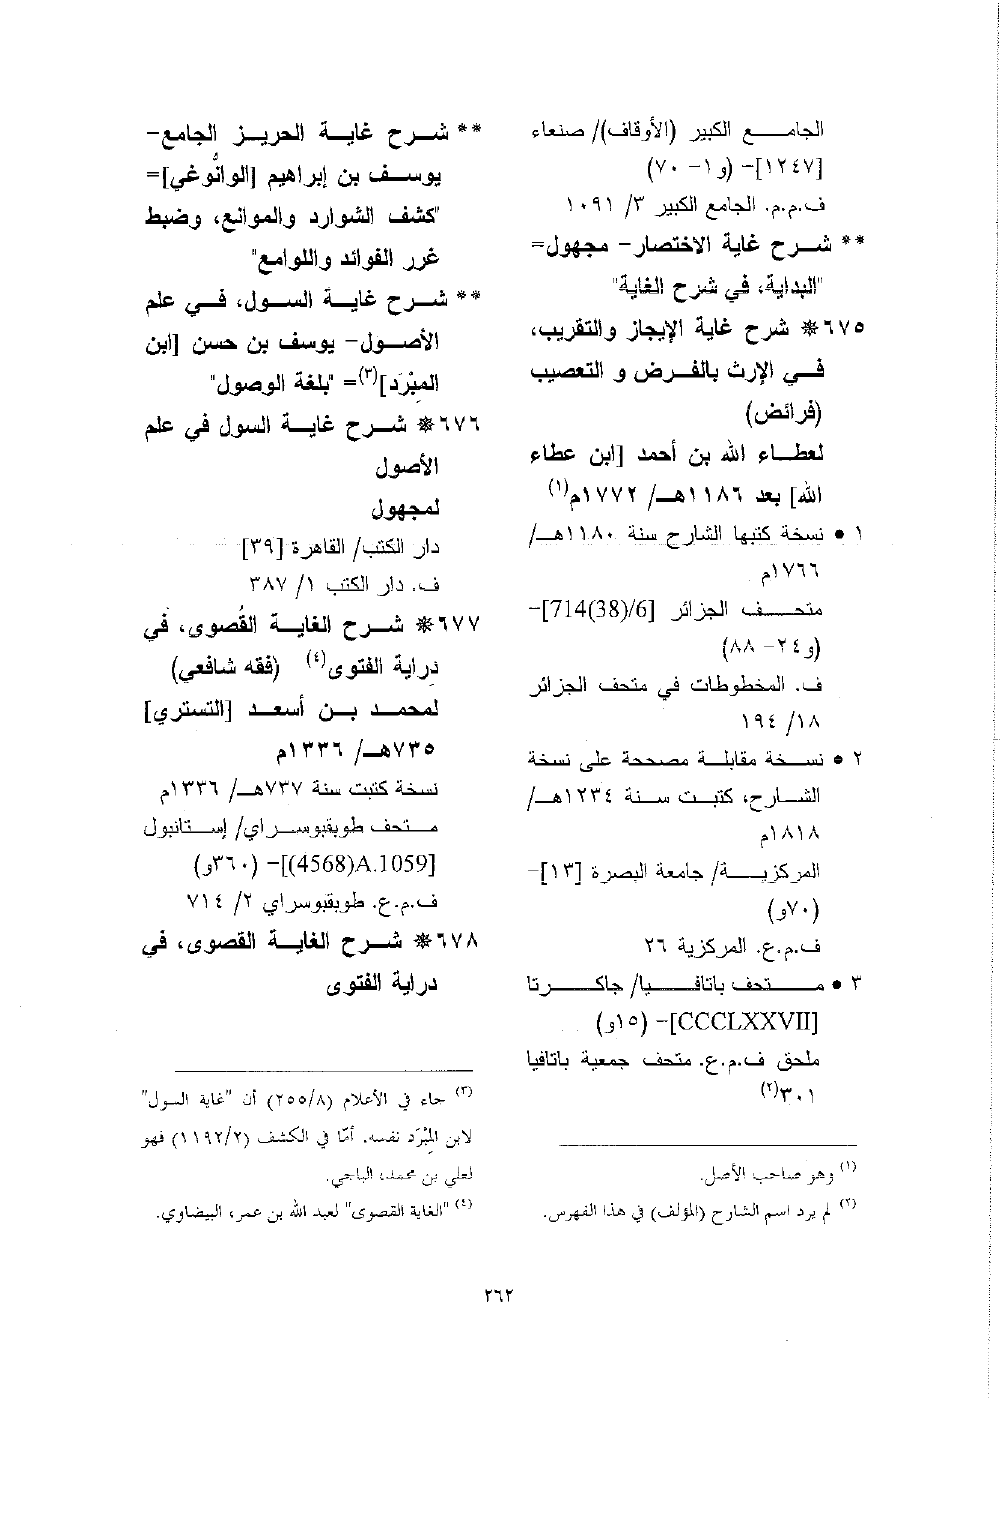 الجامع الكبير (الأوقاف)/ صنعاء
[١٢٤٧]- (و١- ٧٠)
ف.م.م. الجامع الكبير ٣/ ١٠٩١
** شرح غاية الاختصار- مجهول=
"البداية، في شرح الغاية"
٦٧٥* شرح غاية الإيجاز والتقريب،
في الإرث بالفرض و التعصيب
(فرائض)
لعطاء الله بن أحمد [ابن عطاء
الله] بعد ١١٨٦هـ/ ١٧٧٢م(١)
١ • نسخة كتبها الشارح سنة ١١٨٠هـ/
١٧٦٦م
متحف الجزائر [714(38)/6]-
(و٢٤- ٨٨)
ف. المخطوطات في متحف الجزائر
١٨/ ١٩٤
٢ • نسخة مقابلة مصححة على نسخة
الشارح، كتبت سنة ١٢٣٤هـ/
١٨١٨م
المركزية/ جامعة البصرة [١٣]-
(٧٠و)
ف.م.ع. المركزية ٢٦
٣ • متحف باتافيا/ جاكرتا
[CCCLXXVII]- (١٥و)
ملحق ف.م.ع. متحف جمعية باتافيا
٣٠١(٢)
(١) وهو صاحب الأصل.
(٢) لم يرد اسم الشارح (المؤلف) في هذا الفهرس.
** شرح غاية الحريز الجامع-
يوسف بن إبراهيم [الوانُّوغي]=
"كشف الشوارد والموانع، وضبط
غرر الفوائد واللوامع"
** شرح غاية السول، في علم
الأصول- يوسف بن حسن [ابن
المِبْرَد](٣)= "بلغة الوصول"
٦٧٦* شرح غاية السول في علم
الأصول
لمجهول
دار الكتب/ القاهرة [٣٩]
ف. دار الكتب ١/ ٣٨٧
٦٧٧* شرح الغاية القُصوى، في
دراية الفتوى(٤) (فقه شافعي)
لمحمد بن أسعد [التستري]
٧٣٥هـ/ ١٣٣٦م
نسخة كتبت سنة ٧٣٧هـ/ ١٣٣٦م
متحف طوبقبوسراي/ إستانبول
[(4568)A.1059]- (٣٦٠و)
ف.م.ع. طوبقبوسراي ٢/ ٧١٤
٦٧٨* شرح الغاية القصوى، في
دراية الفتوى
(٣) جاء في الأعلام (٢٥٥/٨) أن "غاية السول"
لابن المِبْرَد نفسه. أمّا في الكشف (١١٩٢/٢) فهو
لعلي بن محمد، الباجي.
(٤) "الغاية القصوى" لعبد الله بن عمر، البيضاوي.
٢٦٢